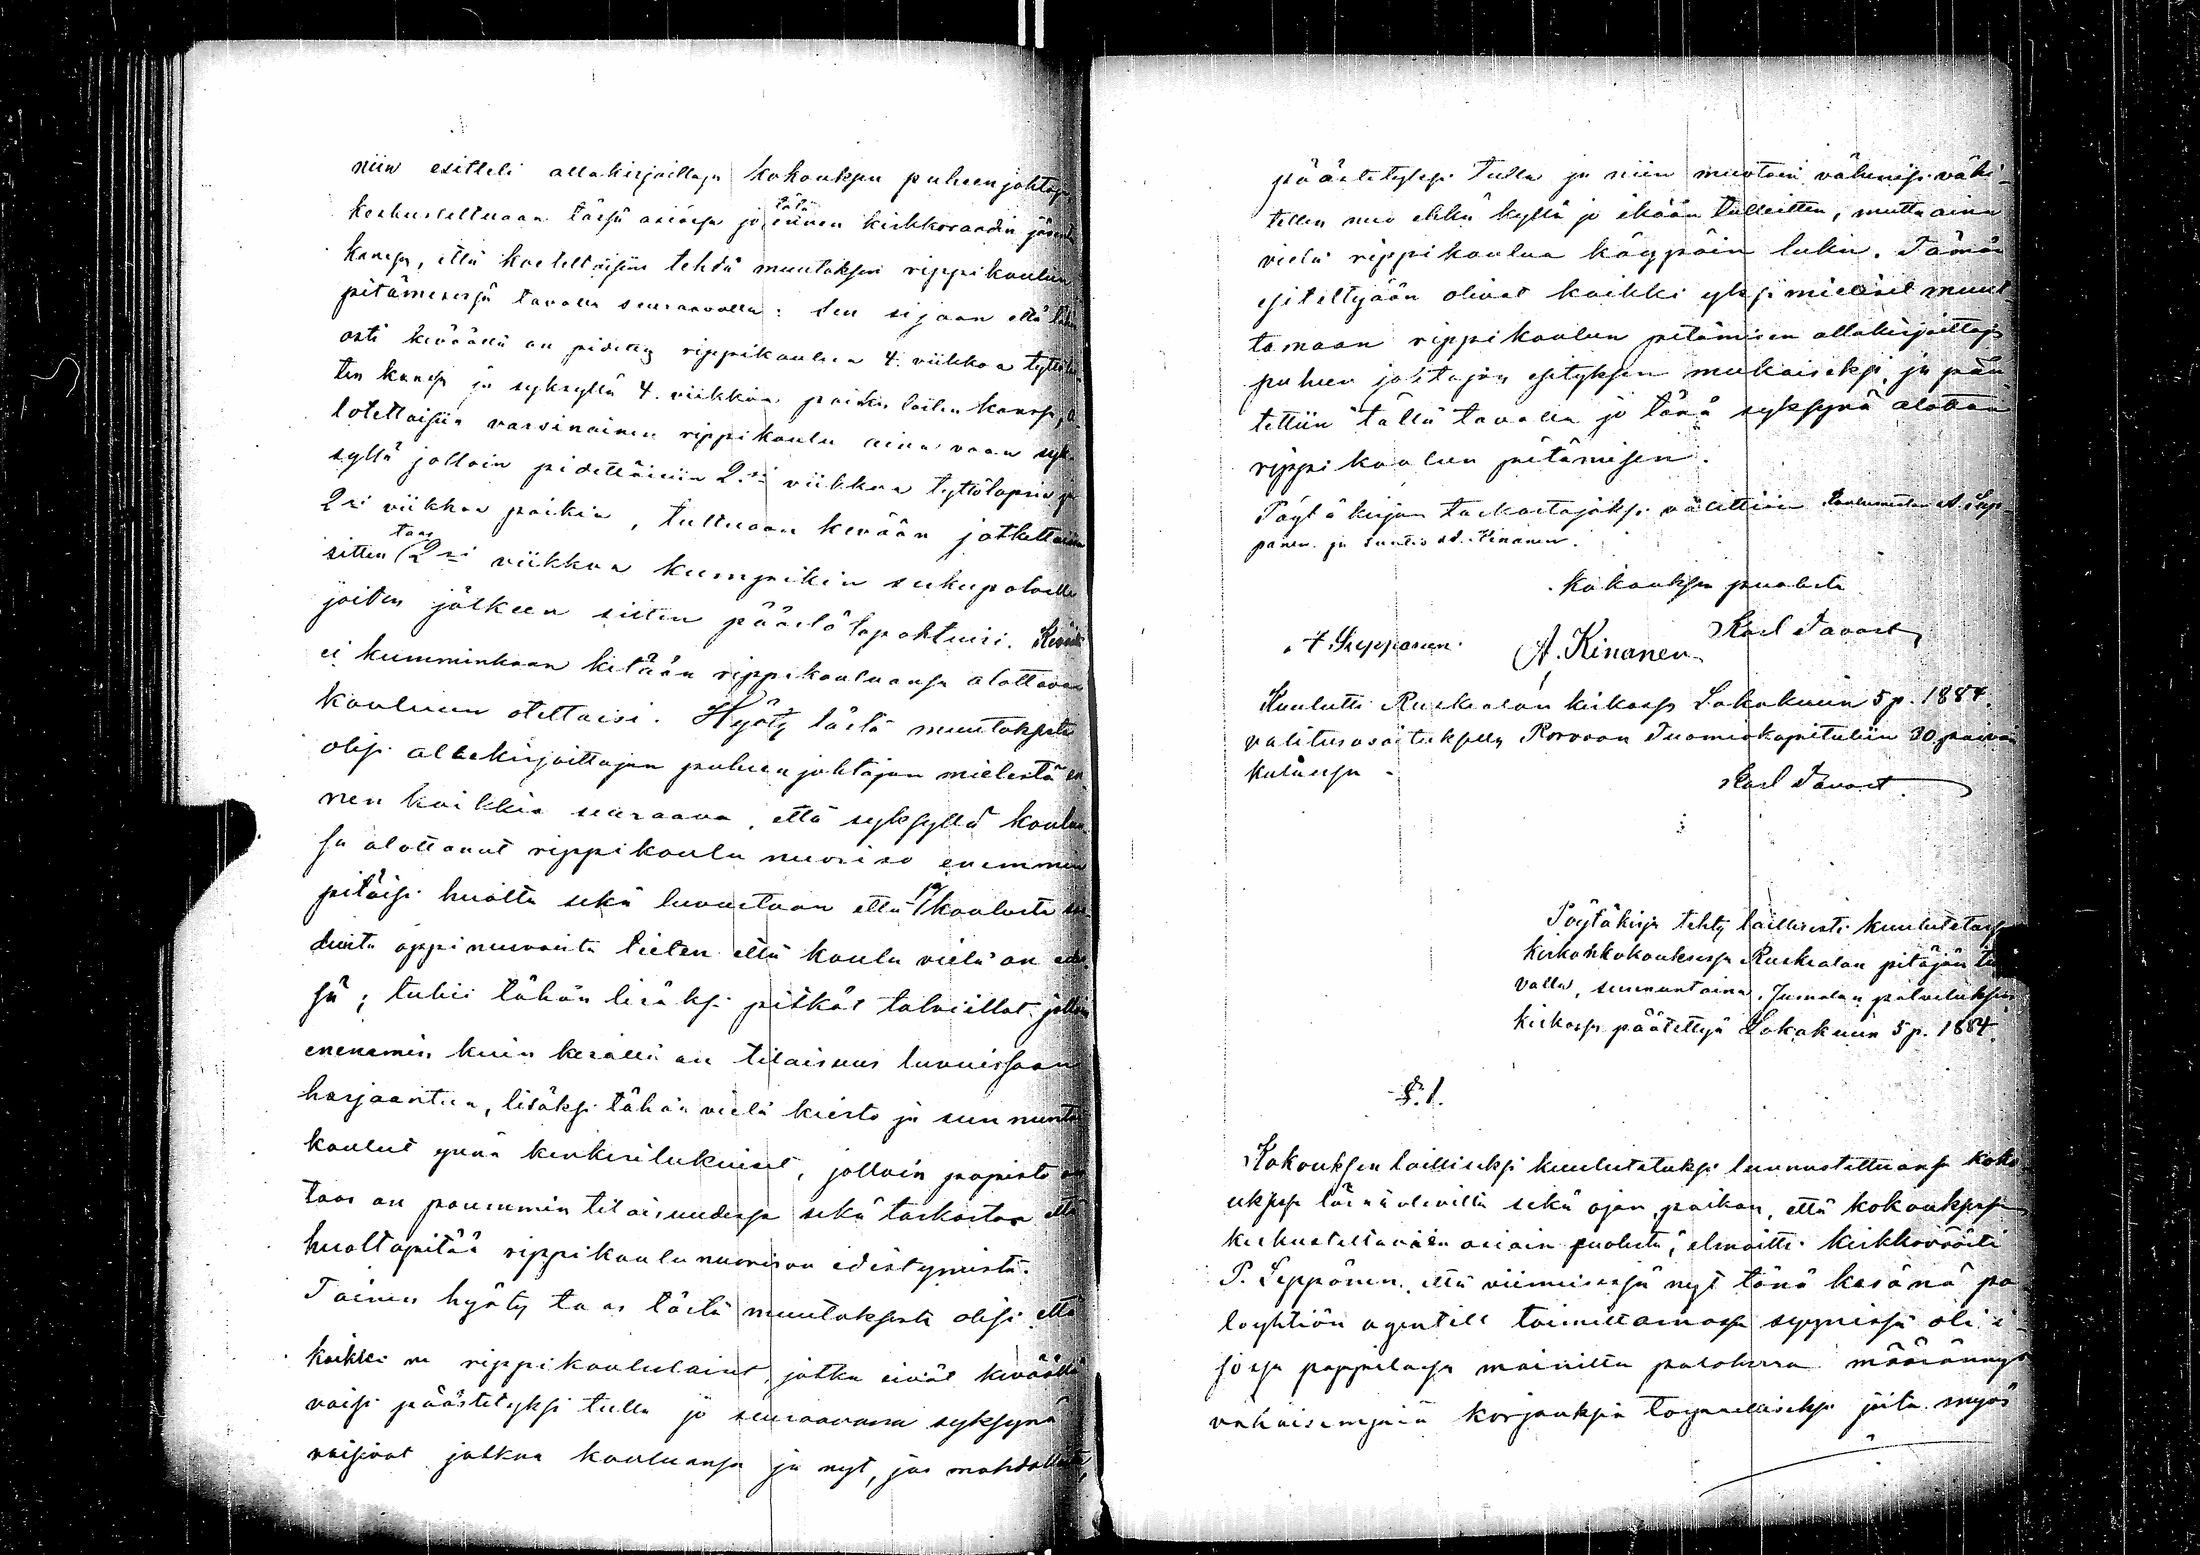 niin esitteli allakirjoittaja kokouksen puheenjohtaja
keskusteltuaan tässä asiassa jo tätä ennen kirkkoraadin jäsenten
kanssa, että koeteltaisiin tehdä muutoksen rippikoulun
pitämisessä tavalla seuraavalla: Sen sijaan että
asti keväänä on pidetty rippikoulua 4. viikkoa tyttö
ten kanssa ja syksyllä 4. viikkoa poika lasten kanssa, a
lotettaisiin varsinainen rippikoulu aina vaan syk
syllä jolloin pidettäisiin 2:si viikkoa tyttölapsia ja
2si viikkoa poikia, tultuaan kevään jatkettaisiin
sitten taas 2si viikkoa kumpaikin sukupuolella
joiden jälkeen sitten päästö tapahtuisi. Keväällä
ei kumminkaan ketään rippikouluansa alottavaa
kouluun otettaisi. Hyöty tästä muutoksesta
olisi allekirjoittajan puheenjohtajan mielestä en
nen kaikkia seuraava, että syksyllä koulun
sa alottanut rippikoulu nuoriso enemmän
pitäisi huolta sekä luvustaan että koulusta saa
duista oppineuvoista tieten että koulu vielä on edes
sä; tulisi tähän lisäksi pitkät talviillat jolloin
enemmin kuin kesällä on tilaisuus luvuissaan
harjaantua, lisäksi tähän vielä kierto ja sunnuntai
koulut ynnä kinkerilukuiset, jolloin papisto on
taas on paremmin tilaisuudessa sekä tarkastaa että
huoltapitää rippikoulunuorison edistymistä.
Toinen hyöty taas tästä muutoksesta olisi että
kaikki ne rippikoululaiset, jotka eivät keväällä
voisi päästetyksi tulla jo seuraavana syksynä
voisivat jatkaa kouluansa ja nyt, jos mahdollista,
päästetyksi tulla ja niin muotoin vähenisi vähi-
tellen nuo ehkä kyllä jo ikään tulleitten, mutta aina
vielä rippikoulua käypäin luku. Tämän
esiteltyään olivat kaikki yksimieliset muut-
tamaan rippikoulun pitämisen allakirjoittaja
puheen johtajan esityksen mukaiseksi, ja pää
tettiin tällä tavalla jo tänä syksynä alottaa
rippikoulun pitämisen.
Pöytäkirjan tarkastajaksi valittiin Koulumestari A. Sep-
panen ja Suntio A. Kinanen.
Kokouksen puolesta
Karl Tavast
A Sepponen. A. Kinanen
Kuulutti Ruskealan kirkossa Lokakuun 5 p. 1884.
valitusosotuksella Porvoon Tuomiokapituliin 30 päivän
kuluessa -
Karl Tavast.
Pöytäkirja tehty laillisesti kuulutetussa
kirkonkokouksessa Ruskealan pitäjän
valla, sunnuntaina, Jumalan palveluksen
kirkossa päätettyä Lokakuun 5 p. 1884.
§. 1.
Kokouksen lailliseksi kuulutetuksi tunnustettuansa koko
uksessa läsnä olevilla sekä ajan, paikan, että kokouksessa
keskusteltavain asiain puolesta, ilmoitti kirkkoväärti
P. Seppänen, että viimeisessä nyt tänä kesänä pa
loyhtiön agentilt toimittamassa syynissä oli i-
sossa pappilassa mainittu palokunna määrännyt
vähäisempiä korjauksia tarpeelliseksi joita myös